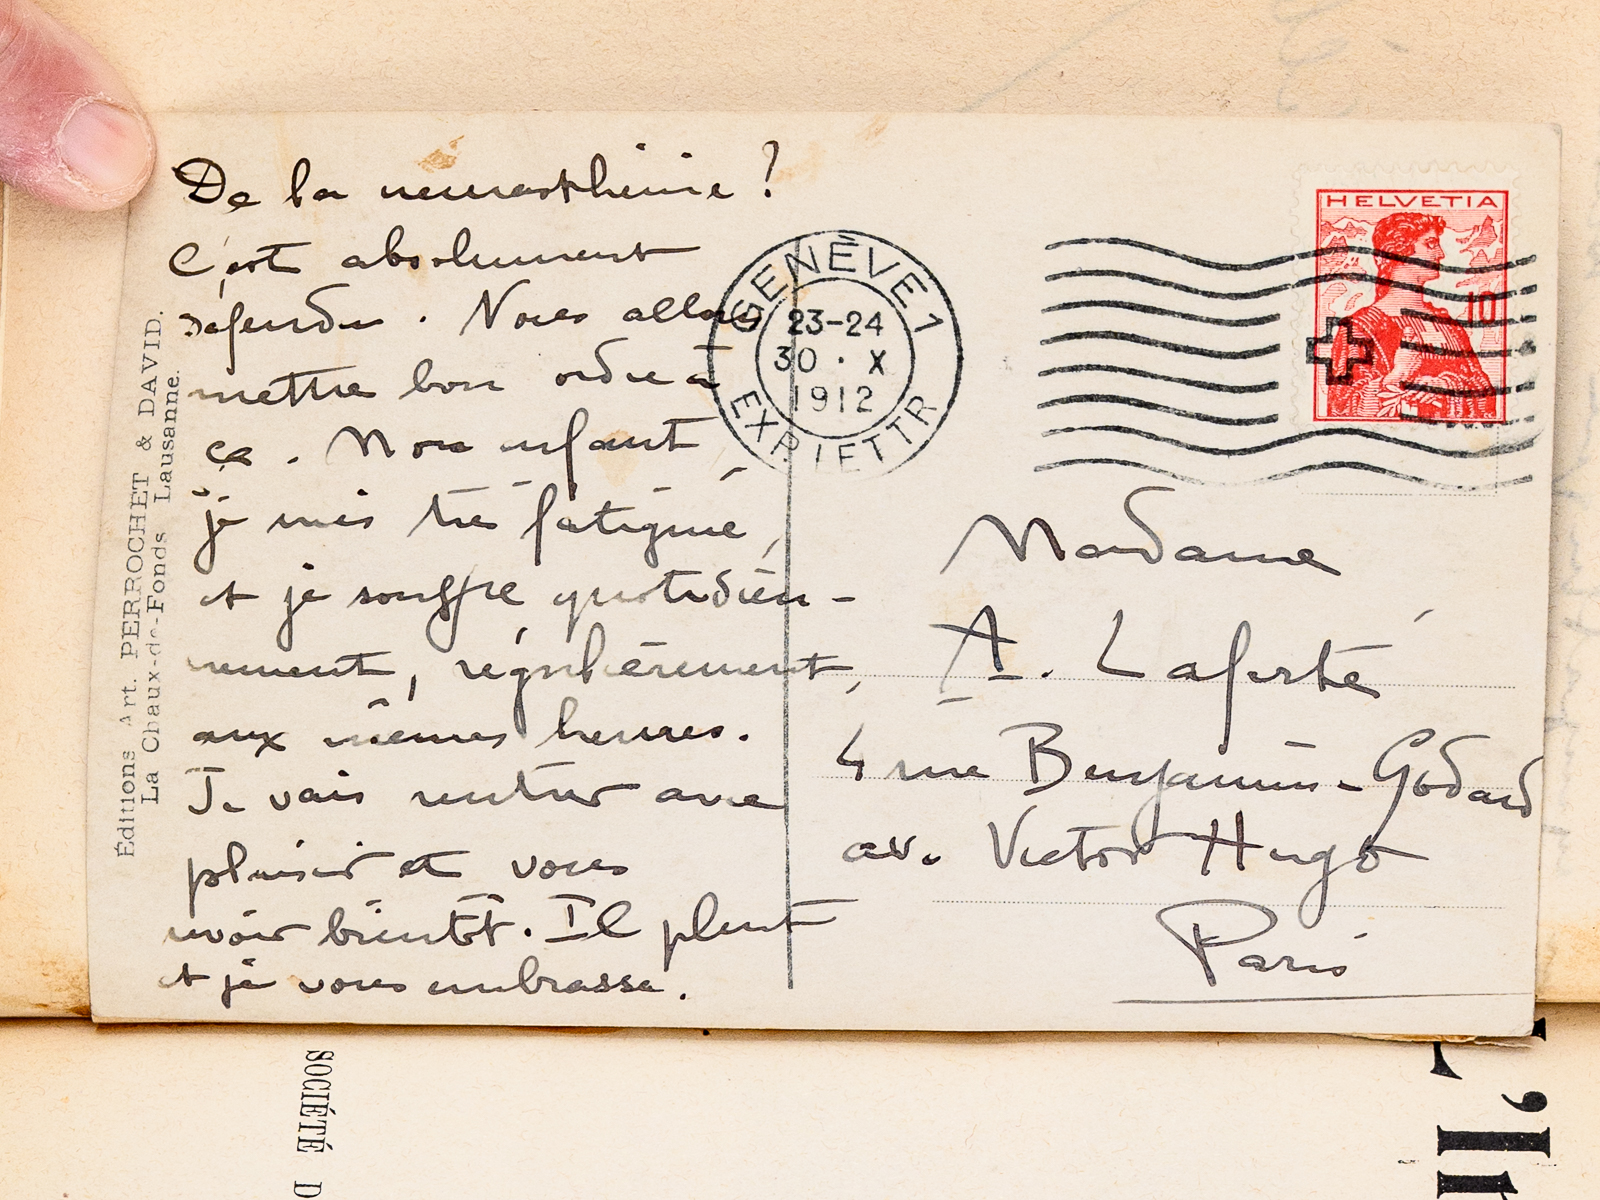 De la neurasthénie ?
C'est absolument
défendu. Nous allons
mettre bon ordre à
ça. Mon enfant,
je suis très fatigué,
et je souffre quotidien-
nement, régulièrement,
aux mêmes heures.
Je vais rentrer avec
plaisir et vous
revoir bientôt. Il pleut
et je vous embrasse.
Éditions Art. PERROCHET & DAVID.
La Chaux-de-Fonds Lausanne.
GENÈVE 1
23-24
30 · X
1912
EXP. LETTR
HELVETIA
10
Madame
A. Laferté
4 rue Benjamin-Godard
av. Victor Hugo
Paris
SOCIÉTÉ D